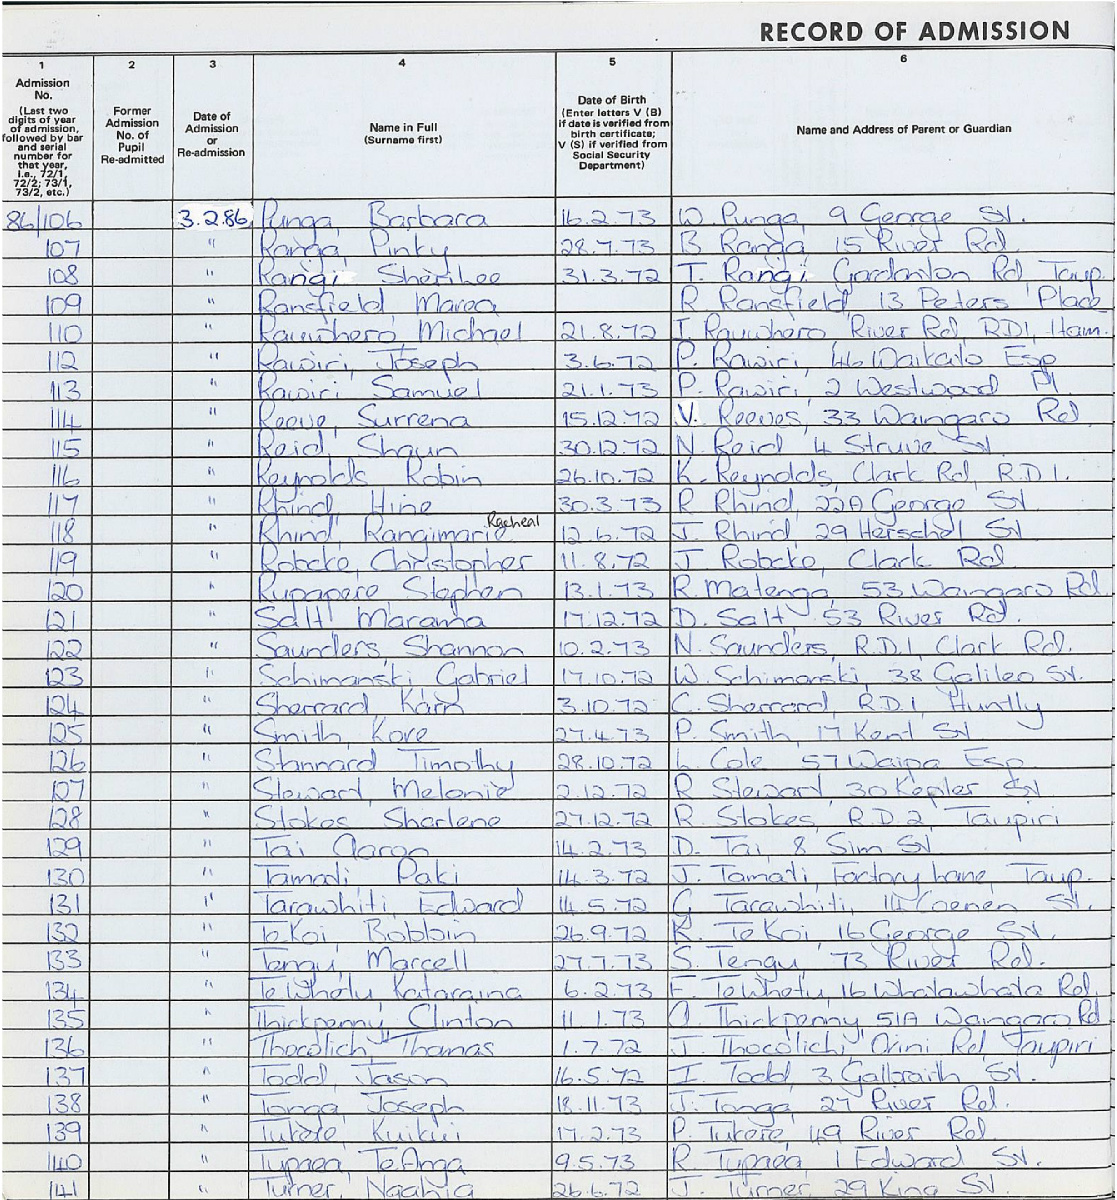 RECORD OF ADMISSION
1 2 3 4 5 6
Admission No. (Last two digits of year of admission, followed by bar and serial number for that year, i.e., 72/1, 72/2; 73/1, 73/2, etc.)
Former Admission No. of Pupil Re-admitted
Date of Admission or Re-admission
Name in Full (Surname first)
Date of Birth (Enter letters V (B) if date is verified from birth certificate; V (S) if verified from Social Security Department)
Name and Address of Parent or Guardian
86/106 3.2.86 Punga, Barbara 16.2.73 W. Punga, 9 George St.
107 " Ranga, Pinky 28.7.73 B. Ranga, 15 River Rd.
108 " Rangi 31.3.72 T. Rangi Gordonton Rd, Taup.
109 " Ransfield, Marea R Ransfield, 13 Peters Place
110 " Rauwhero, Michael 21.8.72 I. Rauwhero River Rd, RD1, Ham.
112 " Rawiri, Joseph 3.6.72 P. Rawiri, 46 Waikato Esp
113 " Rawiri Samuel 21.1.73 P. Rawiri, 2 Westwood Pl
114 " Reeve, Surrena 15.12.72 V. Reeves, 33 Waingaro Rd
115 " Reid, Shaun 30.12.72 N. Reid 4 Struve St.
116 " Reynolds Robin 26.10.72 K. Reynolds, Clark Rd, R.D.1.
117 " Rhind, Hine 30.3.73 R Rhind, 22A George St
118 " Rhind, Rangimarie Racheal 12.6.72 J. Rhind 29 Herschel St
119 " Robcke, Christopher 11.8.72 J Robcke, Clark Rd
120 " Rupapere Stephen 13.1.73 R. Matenga, 53 Waingaro Rd.
121 " Salt Marama 17.12.72 D. Salt, 53 River Rd.
122 " Saunders, Shannon 10.2.73 N. Saunders, R.D.1, Clark Rd.
123 " Schimanski Gabriel 17.10.72 W. Schimanski, 38 Galileo St.
124 " Sherrard, Karn 3.10.72 C. Sherrard, R.D.1, Huntly
125 " Smith, Kore 27.4.73 P. Smith, 17 Kent St
126 " Stannard Timothy 28.10.72 L. Cole 57 Waipa Esp
127 " Steward, Melanie 2.12.72 R Steward 30 Kepler St
128 " Stokes Sharlene 27.12.72 R. Stokes, R.D.2, Taupiri
129 " Tai Aaron 14.2.73 D. Tai, 8 Sim St
130 " Tamati Paki 14.3.72 J. Tamati, Factory Lane, Taup.
131 " Tarawhiti, Edward 14.5.72 G Tarawhiti, 14 Coenen St.
132 " TeKoi, Bobbin 26.9.72 K. TeKoi, 16 George St.
133 " Tengu, Marcell 27.7.73 S. Tengu 73 River Rd.
134 " TeWhetu Kataraina 6.2.73 F. TeWhetu, 16 Whatawhata Rd.
135 " Thickpenny, Clinton 11.1.73 Thickpenny, 51A Waingaro Rd
136 " Thocolich, Thomas 1.7.72 J. Thocolich, Orini Rd, Taupiri
137 " Todd, Jason 16.5.72 I. Todd, 3 Galbraith St.
138 " Tonga, Joseph 18.11.73 J. Tonga, 27 River Rd.
139 " Tukere, Kuikui 17.2.73 P. Tukere, 49 River Rd.
140 " Tupaea, TeAnga 9.5.73 R. Tupaea, 1 Edward St.
141 " Turner, Ngahia 26.6.72 J. Turner, 29 King St.